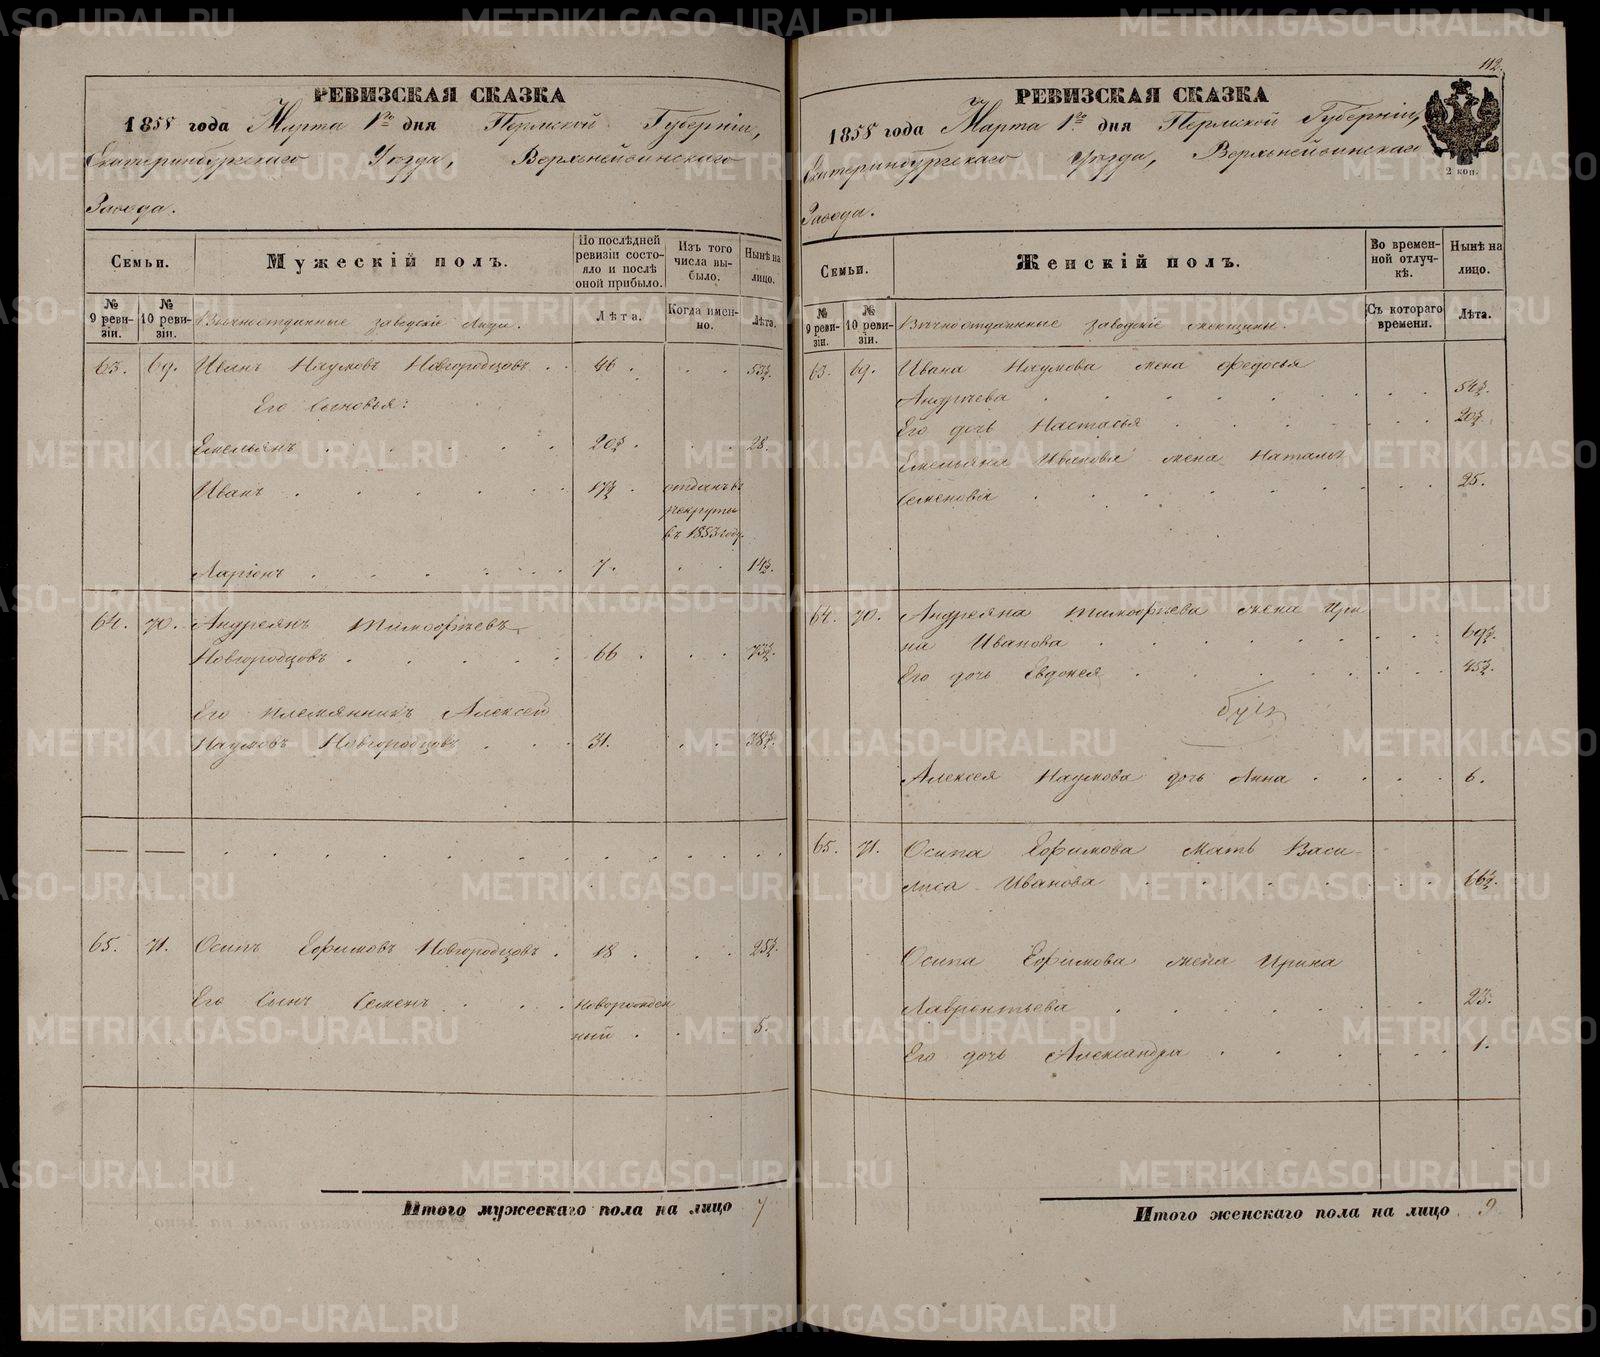 РЕВИЗСКАЯ СКАЗКА
1858 года Марта 1го дня Пермской Губерніи,
Екатеринбургскаго Уѣзда, Верхнейвинскаго
Завода.
Семьи.
Мужескій полъ.
По послѣдней ревизіи состояло и послѣ оной прибыло.
Изъ того числа выбыло.
Нынѣ на лицо.
№ 9 ревизіи.
№ 10 ревизіи.
Вѣчноотданные заводскіе люди.
Лѣта.
Когда именно.
Лѣта.
63. 69. Иванъ Наумовъ Новгородцовъ . . 46 . . . 53½.
Его Сыновья:
Емельянъ . . . . . 20½ . . . 28.
Иванъ . . . . . 17½ . отданъ въ
рекруты
въ 1853 году.
Ларіонъ . . . . . 7. . . 14½.
64. 70. Андреянъ Тимофѣевъ
Новгородцовъ . . . . . 66 . . . 73½.
Его племянникъ Алексей
Наумовъ Новгородцовъ . . . 31. . . 38½.
65. 71. Осипъ Ефимовъ Новгородцовъ . 18 . . . 25½.
Его Сынъ Семенъ . . . новорожден
ный . . . 5.
Итого мужескаго пола на лицо 7
112.
РЕВИЗСКАЯ СКАЗКА
1858 года Марта 1го дня Пермской Губерніи,
Екатеринбургскаго Уѣзда, Верхнейвинскаго
Завода.
2 коп.
Семьи.
Женскій полъ.
Во временной отлучкѣ.
Нынѣ на лицо.
№ 9 ревизіи.
№ 10 ревизіи.
Вѣчноотданные заводскіе женщины.
Съ котораго времени.
Лѣта.
63. 69. Ивана Наумова жена Федосья
Андрѣева . . . . . . . 54½.
Его дочь Настасья . . . . . . 20½.
Емельяна Иванова жена Наталья
Семеновія . . . . . . . 25.
64. 70. Андреяна Тимофѣева жена Ири
на Иванова . . . . . . . 69½.
Его дочь Евдокея . . . . . . . 45½.
Алексея Наумова дочь Анна . . . . 6.
65. 71. Осипа Ефимова мать Васи-
лиса Иванова . . . . . . 66½.
Осипа Ефимова жена Ирина
Лаврентьева . . . . . . 23.
Его дочь Александра . . . . . . 1.
Итого женскаго пола на лицо 9
METRIKI.GASO-URAL.RU